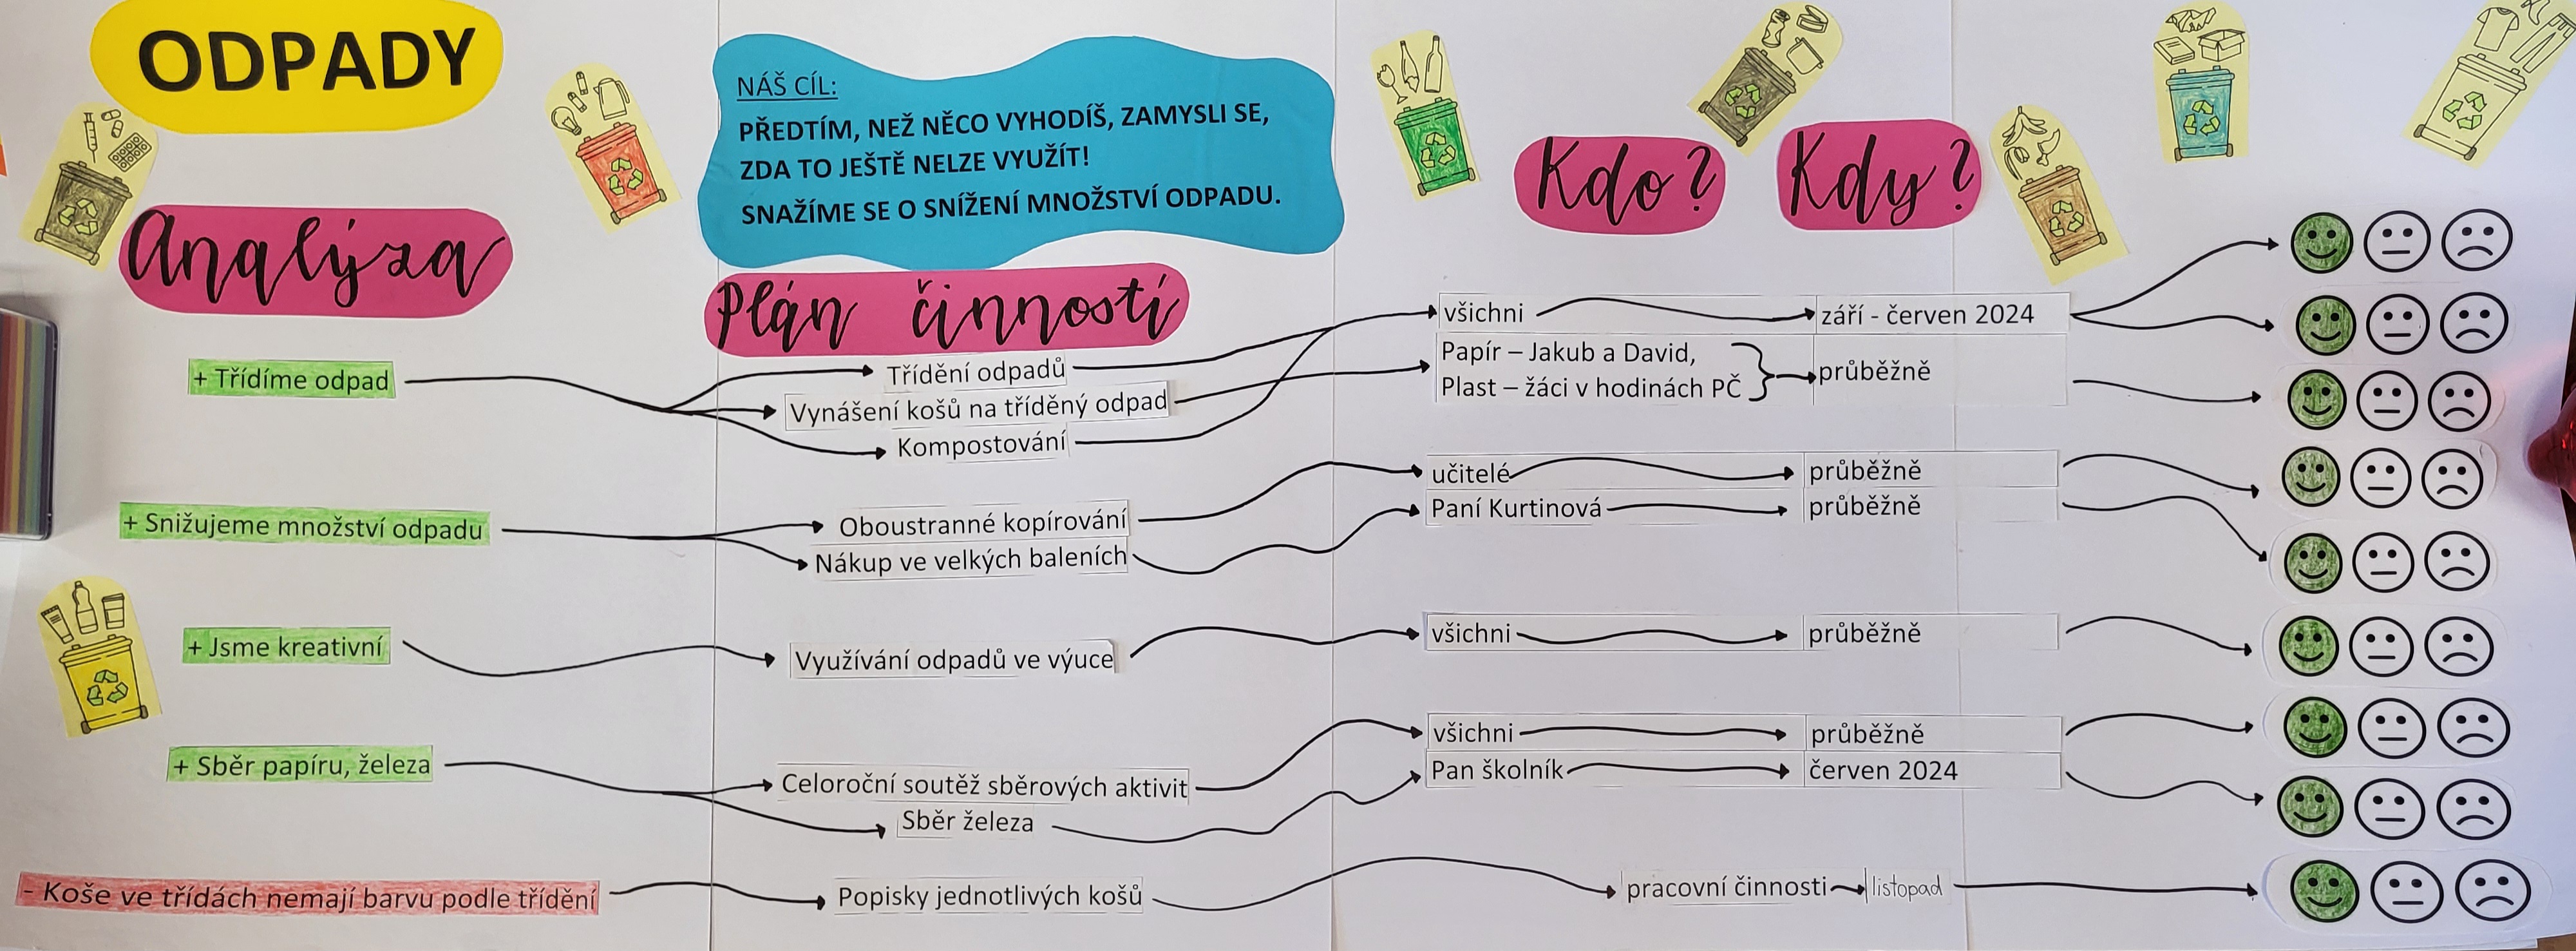 ODPADY
NÁŠ CÍL:
PŘEDTÍM, NEŽ NĚCO VYHODÍŠ, ZAMYSLI SE,
ZDA TO JEŠTĚ NELZE VYUŽÍT!
SNAŽÍME SE O SNÍŽENÍ MNOŽSTVÍ ODPADU.
Analýza
Plán činností
Kdo?
Kdy?
+ Třídíme odpad
Třídění odpadů
všichni
září - červen 2024
Vynášení košů na tříděný odpad
Papír – Jakub a David,
Plast – žáci v hodinách PČ
průběžně
Kompostování
+ Snižujeme množství odpadu
Oboustranné kopírování
učitelé
průběžně
Nákup ve velkých baleních
Paní Kurtinová
průběžně
+ Jsme kreativní
Využívání odpadů ve výuce
všichni
průběžně
+ Sběr papíru, železa
Celoroční soutěž sběrových aktivit
všichni
průběžně
Sběr železa
Pan školník
červen 2024
- Koše ve třídách nemají barvu podle třídění
Popisky jednotlivých košů
pracovní činnosti
listopad